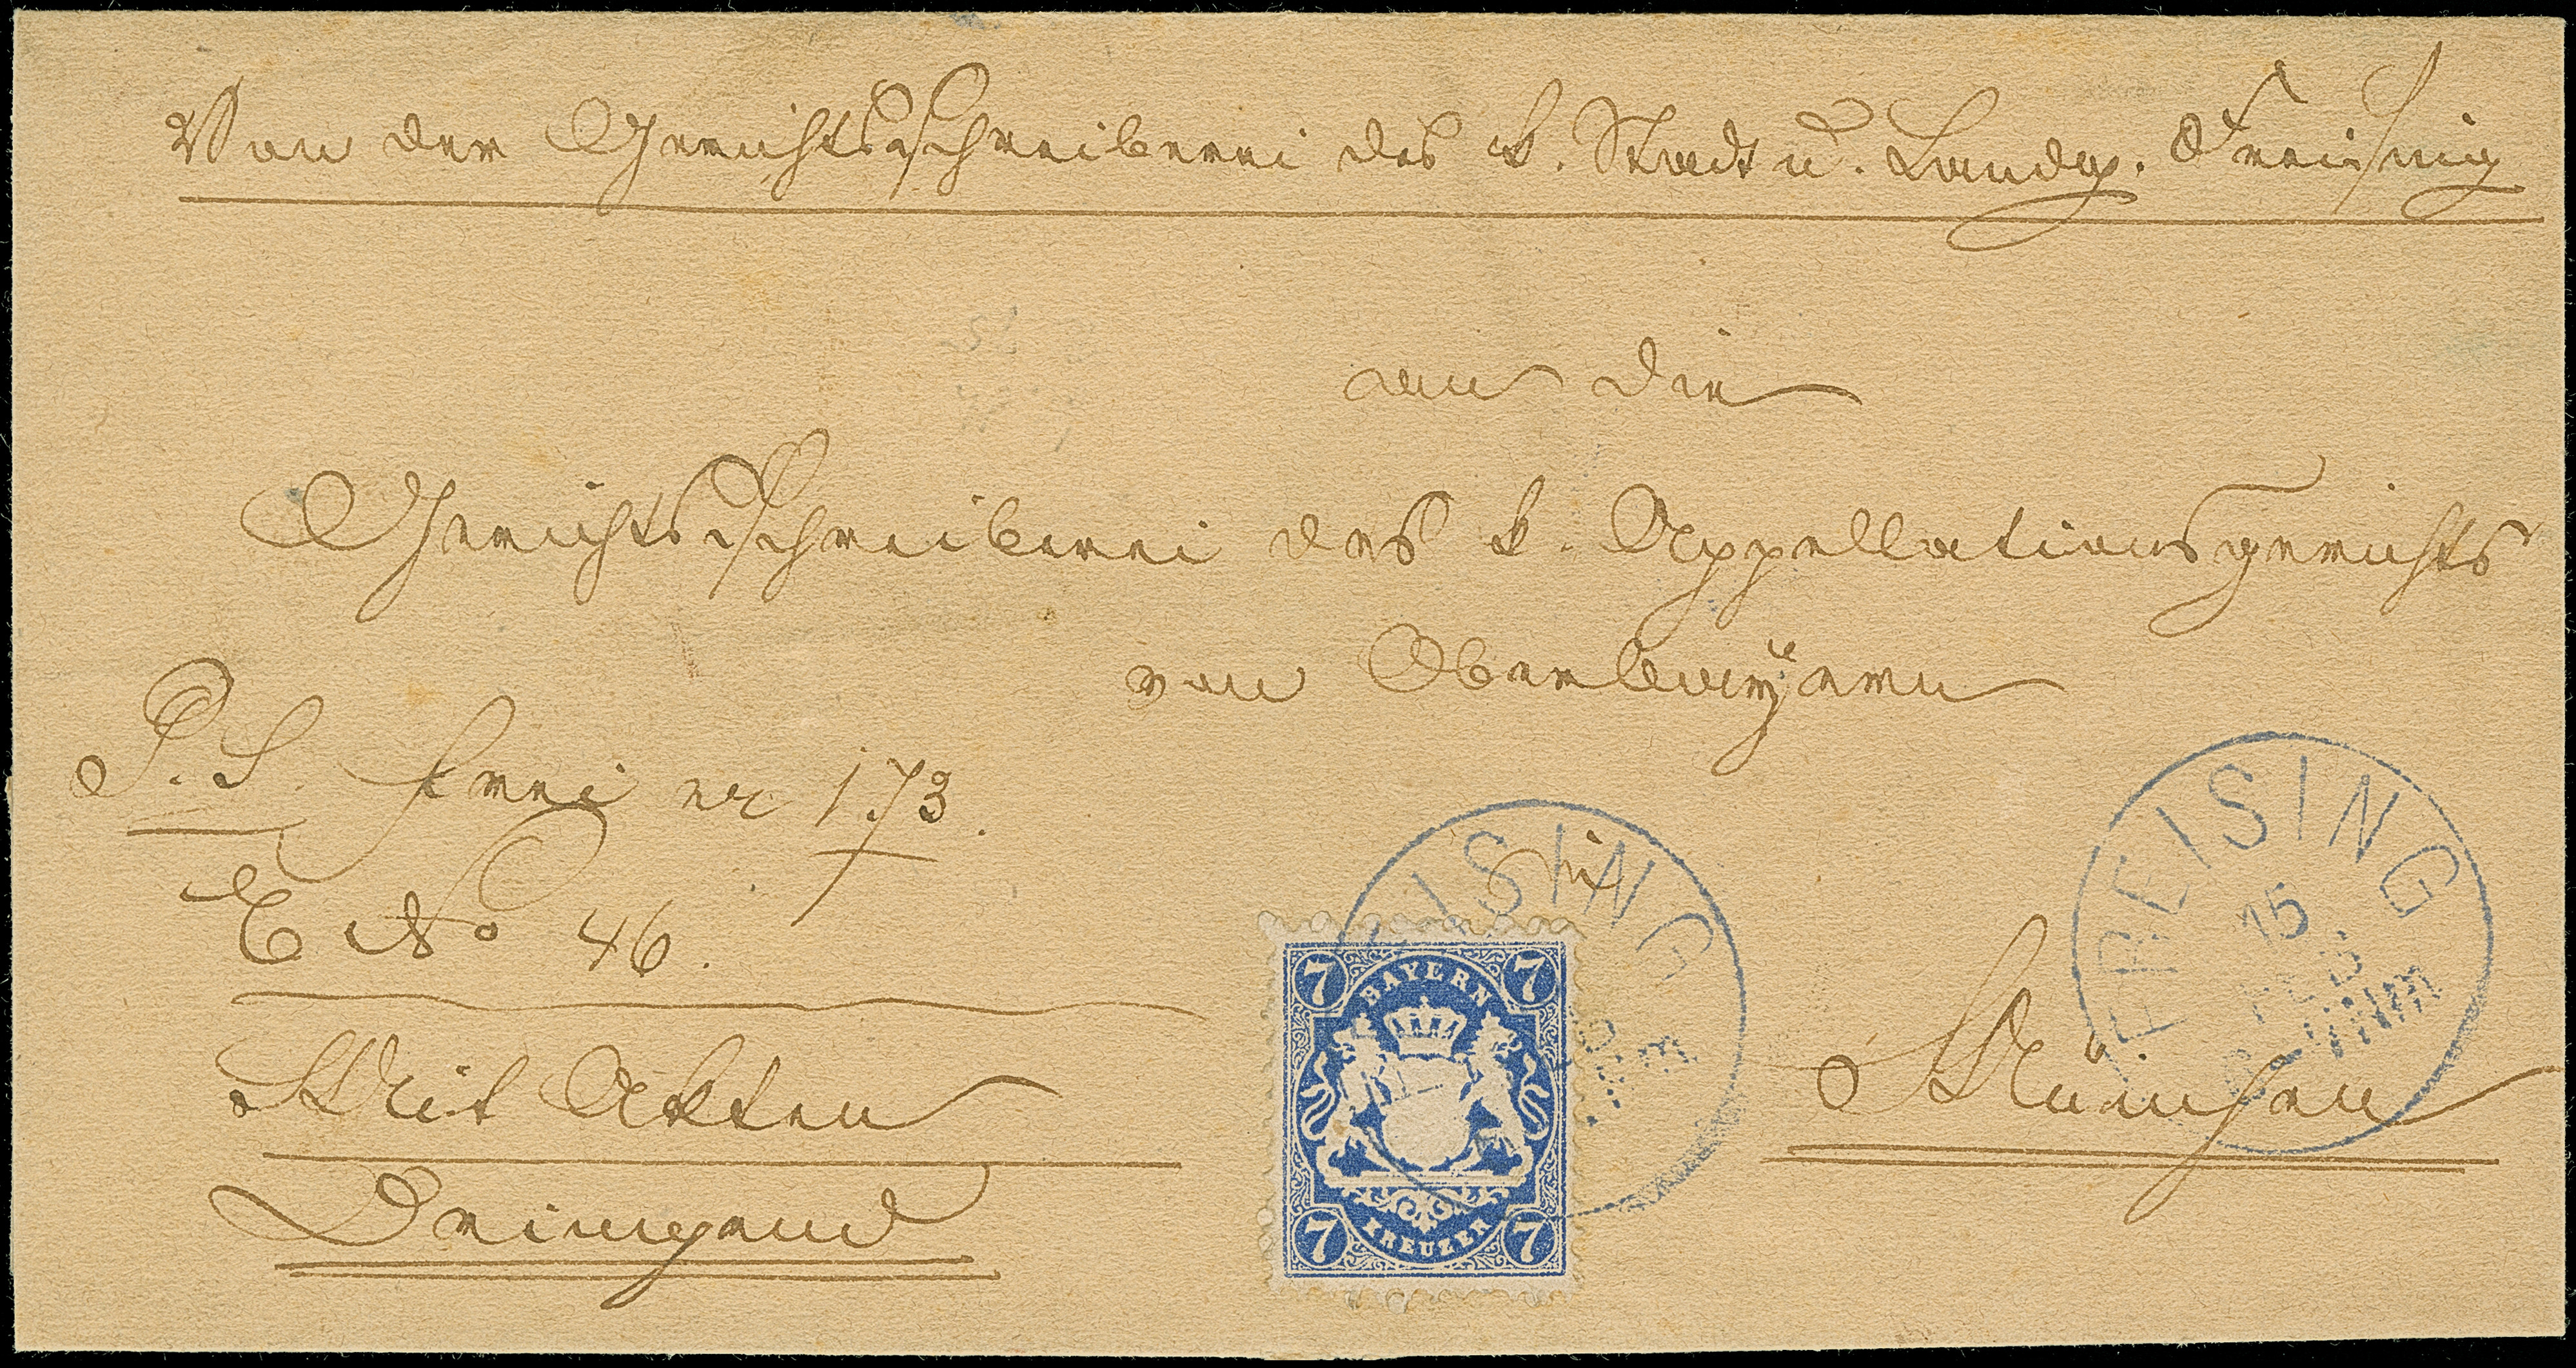 Von der Gerichtsschreiberei des k. Stadt u. Landg. Freising
an die
Gerichtsschreiberei des k. Appellationsgerichts
von Oberbayern
P. S. frei 173.
E No 46.
in
Mit Akten
München
Dringend
FREISING
15
FEB
EISING
7 BAYERN 7
7 KREUZER 7